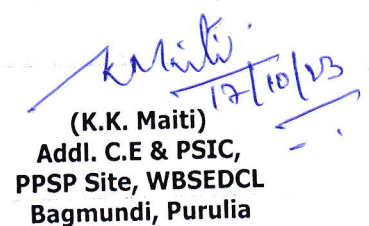 KMaiti
17/10/23
(K.K. Maiti)
Addl. C.E & PSIC,
PPSP Site, WBSEDCL
Bagmundi, Purulia